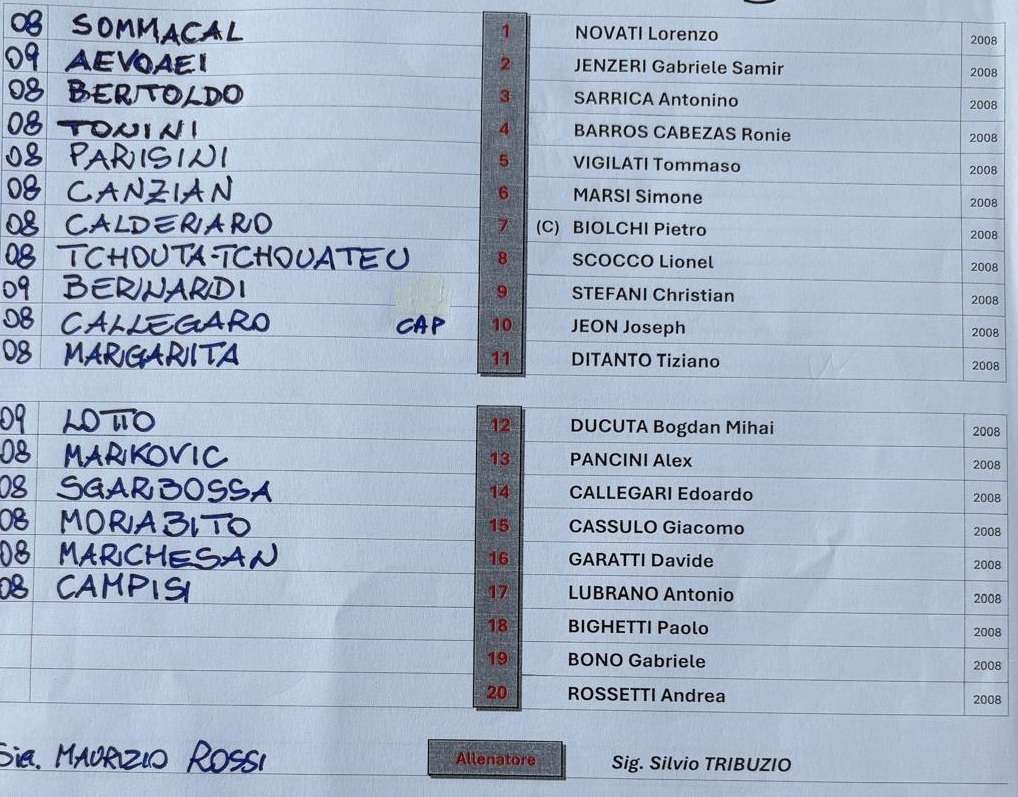 08 SOMMACAL 1 NOVATI Lorenzo 2008
09 AEVOAEI 2 JENZERI Gabriele Samir 2008
08 BERTOLDO 3 SARRICA Antonino 2008
08 TONINI 4 BARROS CABEZAS Ronie 2008
08 PARISINI 5 VIGILATI Tommaso 2008
08 CANZIAN 6 MARSI Simone 2008
08 CALDERARO 7 (C) BIOLCHI Pietro 2008
08 TCHOUTA-TCHOUATEU 8 SCOCCO Lionel 2008
09 BERNARDI 9 STEFANI Christian 2008
08 CALLEGARO CAP 10 JEON Joseph 2008
08 MARGARITA 11 DITANTO Tiziano 2008
09 LOTTO 12 DUCUTA Bogdan Mihai 2008
08 MARKOVIC 13 PANCINI Alex 2008
08 SGARBOSSA 14 CALLEGARI Edoardo 2008
08 MORABITO 15 CASSULO Giacomo 2008
08 MARCHESAN 16 GARATTI Davide 2008
08 CAMPISI 17 LUBRANO Antonio 2008
18 BIGHETTI Paolo 2008
19 BONO Gabriele 2008
20 ROSSETTI Andrea 2008
Sig. MAURIZIO ROSSI Allenatore Sig. Silvio TRIBUZIO